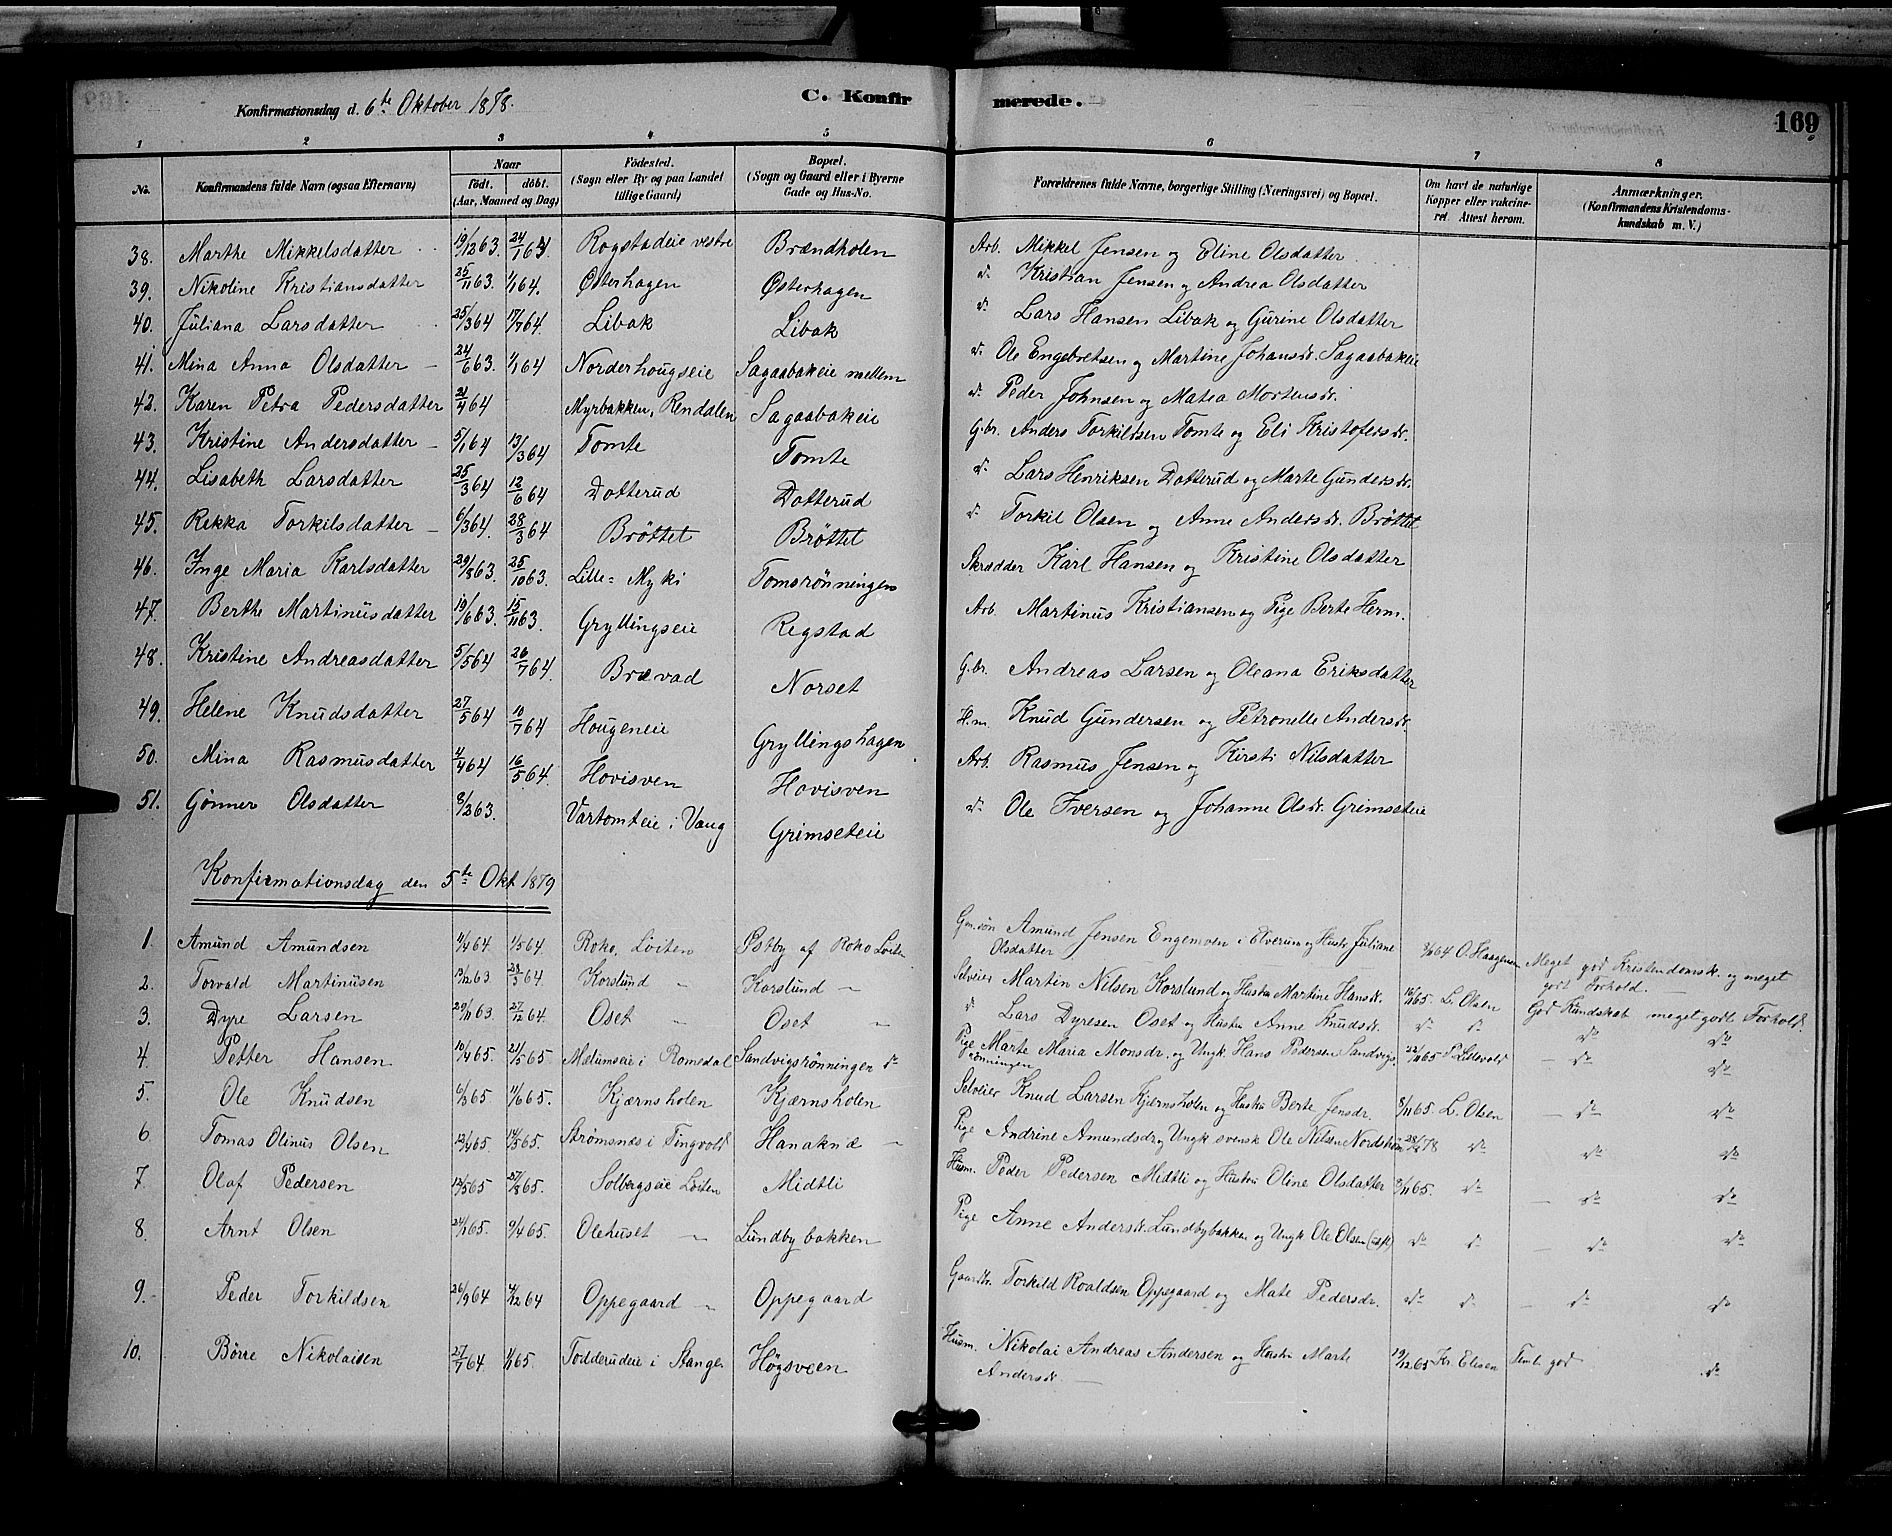 Konfirmationsdag d. 6te Oktober 1878.
C. Konfirmerede.
169
1 2 3 4 5 6 7 8
No. Konfirmandens fulde Navn (ogsaa Efternavn) Naar født. døbt. (Aar, Maaned og Dag) Fødested. (Sogn eller By og paa Landet tillige Gaard) Bopæl. (Sogn og Gaard eller i Byerne Gade og Hus-No. Forældrenes fulde Navne, borgerlige Stilling (Næringsvei) og Bopæl. Om havt de naturlige Kopper eller vakcineret. Attest herom. Anmærkninger. (Konfirmandens Kristendomskundskab m. V.)
38. Marthe Mikkelsdatter 19/12 63. 24/1 64. Rogstadeie vestre Brændholen Arb. Mikkel Jensen og Eline Olsdatter
39. Nikoline Kristiansdatter 25/11 63. 1/1 64. Østerhagen Østerhagen do Kristian Jensen og Andrea Olsdatter
40. Juliana Larsdatter 25/3 64 17/7 64. Libak Libak do Lars Hansen Libak og Gurine Olsdatter
41. Mina Anna Olsdatter 24/6 63. 1/1 64 Norderhougseie Sagaabakeie mellem do Ole Engebretsen og Martine Johansdr. Sagaabakeie
42. Karen Petra Pedersdatter 21/4 64 Myrbakken, Rendalen Sagaabakeie do Peder Johnsen og Matea Mortensdr.
43. Kristine Andersdatter 5/1 64 13/3 64 Tomte Tomte G.br. Anders Torkildsen Tomte og Eli Kristofersdr.
44. Lisabeth Larsdatter 25/3 64 12/6 64 Dotterud Dotterud do Lars Henriksen Dotterud og Marte Gundersdr.
45. Rekka Torkilsdatter 6/3 64. 28/3 64 Brøttet Brøttet do Torkil Olsen og Anne Andersdr. Brøttet
46. Inge Maria Karlsdatter 29/8 63. 25/10 63. Lille=Myki Tomsrønningen Skrædder Karl Hansen og Kristine Olsdatter
47. Berthe Martinusdatter 19/6 63. 15/11 63. Gryllingseie Regstad Arb. Martinus Kristiansen og Pige Berte Herm.
48. Kristine Andreasdatter 5/5 64 26/7 64. Brævad Norset G.br. Andreas Larsen og Oleana Eriksdatter
49. Helene Knudsdatter 27/5 64 10/7 64 Hougeneie Gryllingshagen H.m. Knud Gundersen og Petronelle Andersdr.
50. Mina Rasmusdatter 4/4 64 16/5 64. Hovisven Hovisven Arb. Rasmus Jensen og Kirsti Nilsdatter
51. Gønner Olsdatter 8/2 63. Vartomteie i Vang Grimseteie do Ole Iversen og Johanne Olsdr. Grimseteie
Konfirmationsdag den 5te Okt 1879
1. Amund Amundsen 11/4 64. 1/5 64. Roko, Løiten Østby af Roko Løiten Gm.søn Amund Jensen Engemoen i Elverum og Hustr Juliane Olsdatter 64 O. Haagensen Meget god Kristendomsk. og meget godt Forhold.
2. Torvald Martinusen 13/12 63 28/3 64. Korslund Korslund Selveier Martin Nilsen Korslund og Hustru Martine Hansdr. 16/11 65. L. Olsen God Kundskab meget godt Forhold.
3. Dyre Larsen 29/11 63 27/12 64. Oset Oset do Lars Dyresen Oset og Hustru Anne Knudsdr. do do do do
4. Petter Hansen 10/4 65. 21/5 65 Melumseie i Romedal Sandvigsrønningen do Pige Marte Maria Monsdr. og Ungk. Hans Pedersen Sandvigsrønningen 22/11 65 P. Lilevold do do
5. Ole Knudsen 6/3 65 11/6 65. Kjærnsholen Kjærnsholen Selveier Knud Larsen Kjærnsholen og Hustru Berte Jensdr. 8/11 65. L. Olsen do do
6. Tomas Olinus Olsen 12/4 65. 14/5 65. Strømsnæs i Tingvold Hanaknæ Pige Andrine Amundsdr og Ungk svensk Ole Nilsen 28/9 78 do do do
7. Olaf Pedersen 12/5 65 27/8 65. Solbergseie Løiten Midtli Husm. Peder Pedersen Midtli og Hustru Oline Olsdatter 9/11 65. do do do
8. Arnt Olsen 24/1 65. 9/4 65. Olehuset Lundbybakken Pige Anne Andersdr. Lundbybakken og Ungk Ole Olsen do do do do
9. Peder Torkildsen 26/9 64 4/12 64 Oppegaard Oppegaard Gaardbr. Torkild Roaldsen Oppegaard og Mate Pedersdr. do do do do
10. Børre Nikolaisen 27/7 64 1/1 65. Todderudeie i Stange Høgsveen Husm. Nikolai Andreas Andersen og Hustru Marte Andersdr. 19/12 65 Kr. Elisen Teml. god do